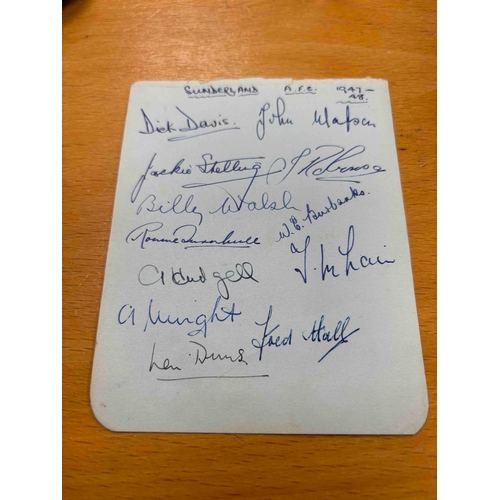 SUNDERLAND A.F.C. 1947-48.
Dick Davis. John Mapson
Jackie Stelling J Robinson
Billy Walsh W.E. Burbanks.
Ronnie Turnbull
A Hudgell T. McLain
A Wright Fred Hall
Len Duns